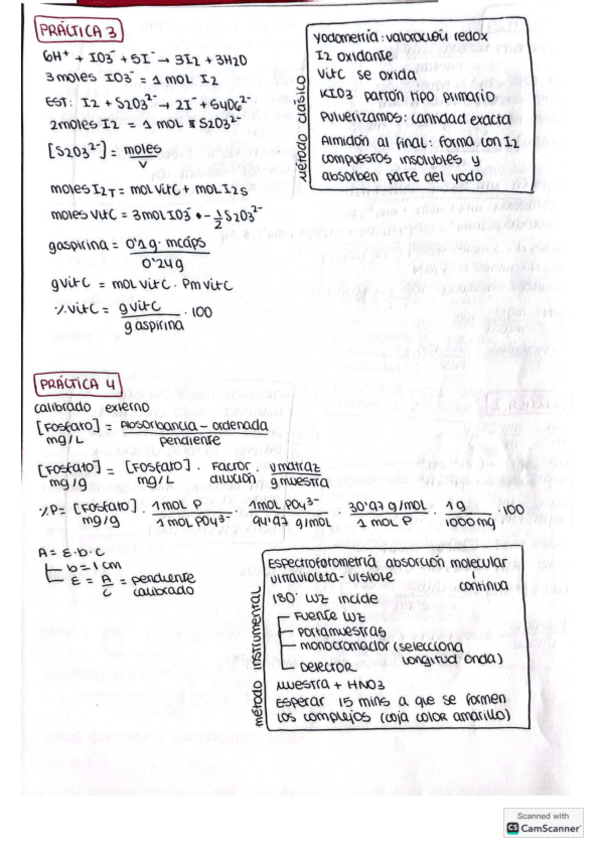 PRÁCTICA 3
6H⁺ + IO3⁻ + 5I⁻ → 3I2 + 3H2O
3 moles IO3⁻ = 1 mol I2
EST: I2 + S2O3²⁻ → 2I⁻ + S4O6²⁻
2 moles I2 = 1 mol S2O3²⁻
[S2O3²⁻] = moles
V
moles I2T = mol VitC + mol I2S
moles VitC = 3 mol IO3⁻ - 1/2 S2O3²⁻
gaspirina = 0'1g · mcáps
0'24g
gvitC = mol vitC · Pm vitC
%vitC = gvitC · 100
g aspirina
método clásico
Yodometría: valoración redox
I2 oxidante
VitC se oxida
KIO3 patrón tipo primario
Pulverizamos: cantidad exacta
Almidón al final: forma con I2
compuestos insolubles y
absorben parte del yodo
PRÁCTICA 4
calibrado externo
[Fosfato] = Absorbancia - ordenada
mg/L pendiente
[Fosfato] = [Fosfato] · Factor · Vmatraz
mg/g mg/L dilución gmuestra
%P = [Fosfato] · 1 mol P · 1 mol PO4³⁻ · 30'97 g/mol · 1g · 100
mg/g 1 mol PO4³⁻ 94'97 g/mol 1 mol P 1000 mg
A = ε·b·c
b = 1 cm
ε = A = pendiente
C calibrado
método instrumental
Espectrofotometría absorción molecular
ultravioleta-visible continua
180° luz incide
Fuente luz
Portamuestras
monocromador (selecciona
longitud onda)
Detector
Muestra + HNO3
Esperar 15 mins a que se formen
los complejos (coja color amarillo)
Scanned with
CS CamScanner